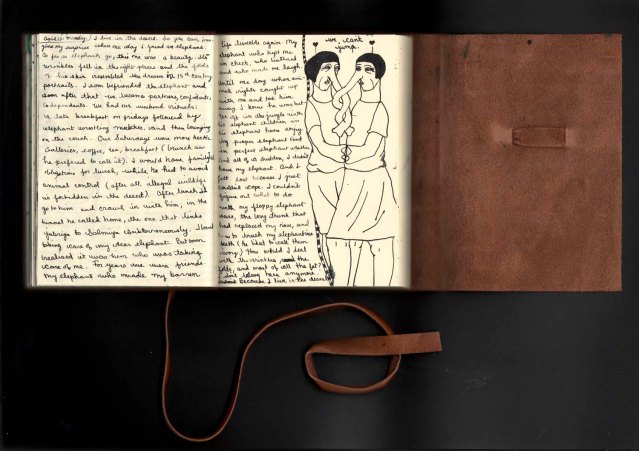 april 15. Monday. I live in the desert. So you can ima-
gine my surprise when one day I found an elephant.
So far as elephants go, this one was a beauty. Its
wrinkles fell in the right places and the folds
of his skin resembled the dresses of 15th century
portraits. I soon befriended the elephant and
soon after that we became partners, confidants,
codependents. We had our weekend rituals:
a late breakfast on fridays followed by
elephant wrestling matches, and then lounging
on the couch. Our Saturdays were more hectic
Galleries, coffee, tea, breakfast (brunch as
he preferred to call it). I would have family
obligations for lunch, while he had to avoid
animal control (after all, illegal wildlife
is forbidden in the desert). After lunch I'd
go to him and crawl in with him, in the
tunnel he called home, the one that links
Jabriya to Salmiya subterraneously. I loved
taking care of my dear elephant. But soon
realised it was him who was taking
care of me. For years we were friends
My elephant who made my barren
life liveable again My
elephant who kept me
in check, who listened
and who made me laugh
Until one day when ani-
mal rights caught up
with me and took him
away. I knew he was bet-
ter off in the jungle with
his elephant children in
his elephant home enjoy-
ing proper elephant food
in perfect elephant weather
And all of a sudden, I didn't
have my elephant. And I
felt lost because I just
couldn't cope. I couldn't
figure out what to do
with my floppy elephant
ears, the long trunk that
had replaced my nose, and
how to brush my elephantine
teeth (he liked to call them
ivory). How would I deal
with the wrinkles, and the
folds, and most of all the fat? I
don't belong here anymore
because I live in the desert
we can't
jump.